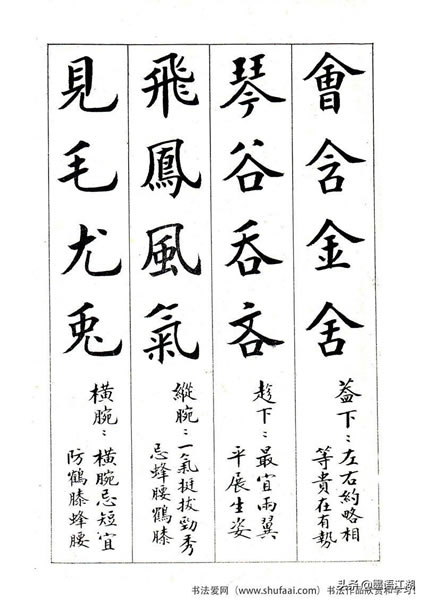 會含金舍
蓋下：左右約略相
等貴在有勢
琴谷吞吝
趁下：最宜兩翼
平展生姿
飛鳳風氣
縱腕：一氣挺拔勁秀
忌蜂腰鶴膝
見毛尤兔
橫腕：橫腕忌短宜
防鶴膝蜂腰
头条 @语江湖
书法爱网（www.shufaai.com）书法作品欣赏和学习！